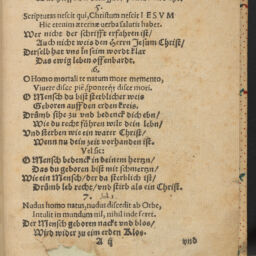 5.
Scripturas nescit qui, Christum nescit IESVM
Hic etenim æternæ verba salutis habet.
Wer nicht der schrifft erfahren ist/
Auch nicht weis den Herrn Jesum Christ/
Derselb hat vns in seim wordt klar
Das ewig leben offenbardt.
6.
O Homo mortalis te natum more memento,
Viuere disce piè, sponteq́; disce mori.
O Mensch du bist sterblicher weis
Geboren auff den erden kreis.
Drumb sihe zu vnd bedenck dich ebn/
Wie du recht führen wilt dein lebn/
Vnd sterben wie ein warer Christ/
Wenn nu dein zeit vorhanden ist.
Vel sic:
O Mensch bedenck in deinem hertzn/
Das du geboren bist mit schmertzn/
Wie ein Mensch/ der da sterblich ist/
Drumb leb recht/ vnd stirb als ein Christ.
7.
Nudus homo natus, nudus discedit ab Orbe,
Intulit in mundum nil, nihil inde feret.
Der Mensch geboren nackt vnd blos/
Wird wider zu eim erden Klos.
A ij vnd